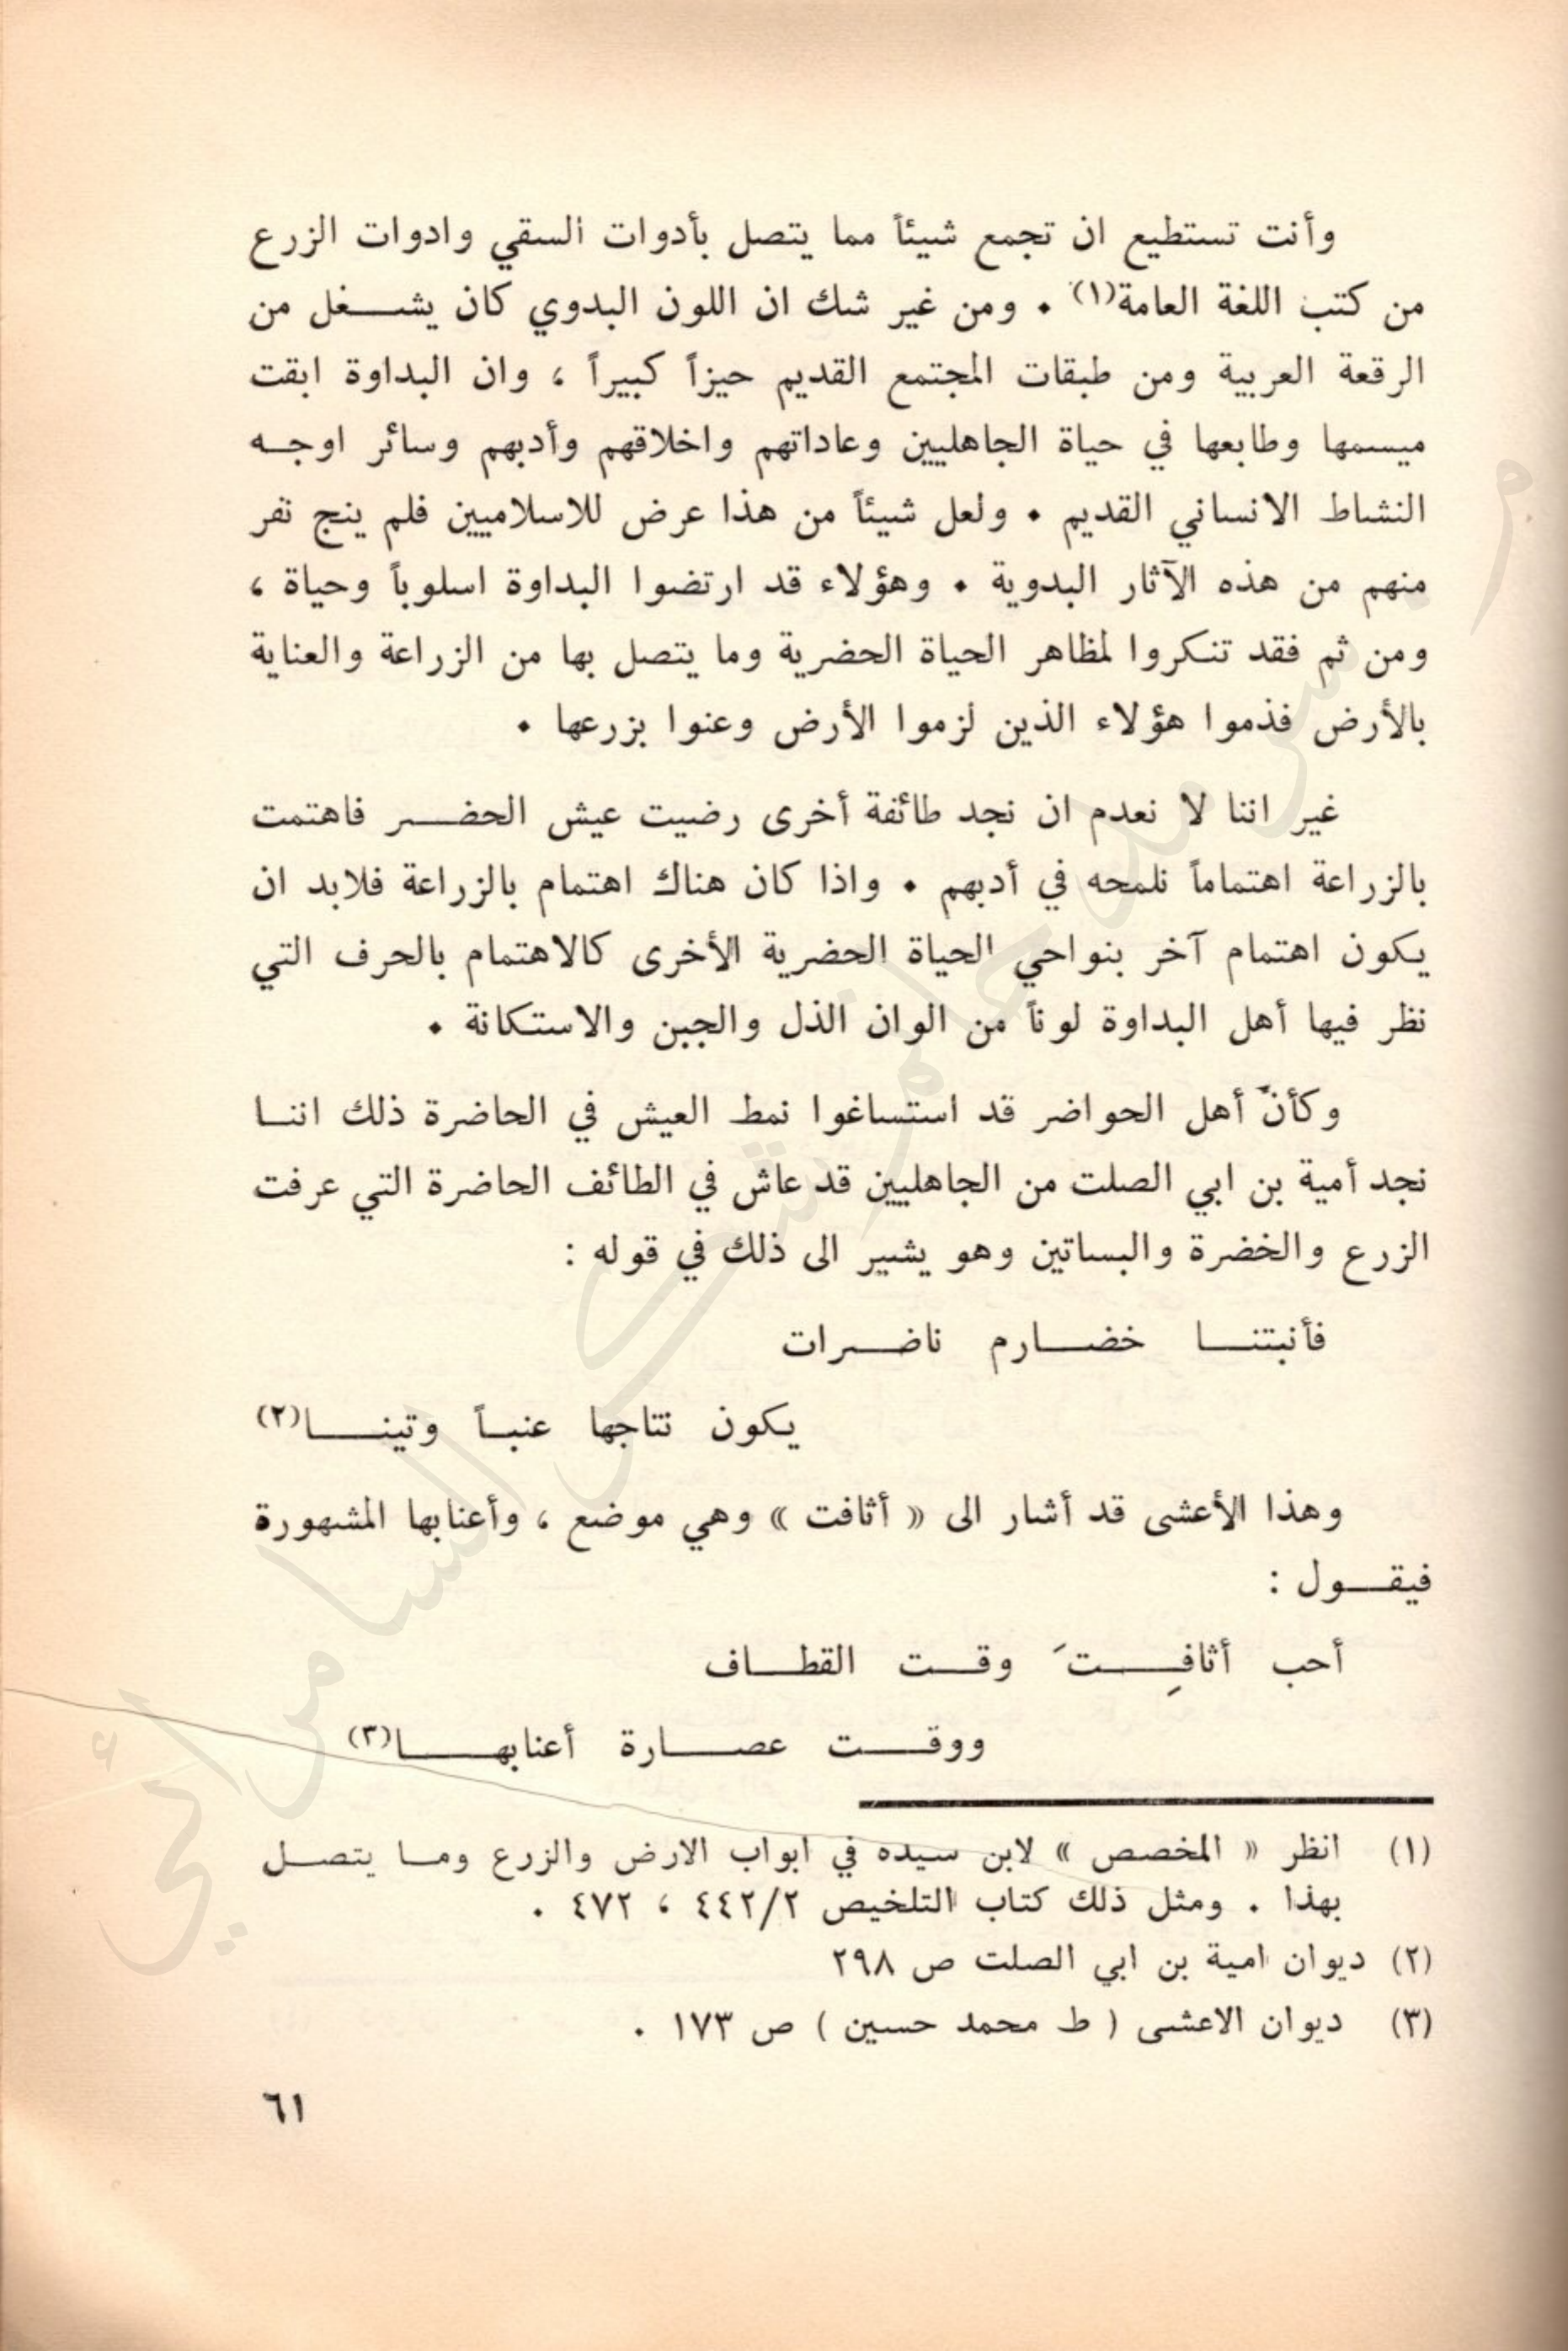 وأنت تستطيع ان تجمع شيئاً مما يتصل بأدوات السقي وادوات الزرع
من كتب اللغة العامة(١) . ومن غير شك ان اللون البدوي كان يشغل من
الرقعة العربية ومن طبقات المجتمع القديم حيزاً كبيراً ، وان البداوة ابقت
ميسمها وطابعها في حياة الجاهليين وعاداتهم واخلاقهم وأدبهم وسائر اوجه
النشاط الانساني القديم . ولعل شيئاً من هذا عرض للاسلاميين فلم ينج نفر
منهم من هذه الآثار البدوية . وهؤلاء قد ارتضوا البداوة اسلوباً وحياة ،
ومن ثم فقد تنكروا لمظاهر الحياة الحضرية وما يتصل بها من الزراعة والعناية
بالأرض فذموا هؤلاء الذين لزموا الأرض وعنوا بزرعها .
غير اننا لا نعدم ان نجد طائفة أخرى رضيت عيش الحضر فاهتمت
بالزراعة اهتماماً نلمحه في أدبهم . واذا كان هناك اهتمام بالزراعة فلابد ان
يكون اهتمام آخر بنواحي الحياة الحضرية الأخرى كالاهتمام بالحرف التي
نظر فيها أهل البداوة لوناً من الوان الذل والجبن والاستكانة .
وكأنّ أهل الحواضر قد استساغوا نمط العيش في الحاضرة ذلك اننا
نجد أمية بن ابي الصلت من الجاهليين قد عاش في الطائف الحاضرة التي عرفت
الزرع والخضرة والبساتين وهو يشير الى ذلك في قوله :
فأنبتنا خضارم ناضرات
يكون نتاجها عنباً وتينا(٢)
وهذا الأعشى قد أشار الى « أثافت » وهي موضع ، وأعنابها المشهورة
فيقول :
أحب أثافِتَ وقت القطاف
ووقت عصارة أعنابها(٣)
(١) انظر « المخصص » لابن سيده في ابواب الارض والزرع وما يتصل
بهذا . ومثل ذلك كتاب التلخيص ٤٤٢/٢ ، ٤٧٢ .
(٢) ديوان امية بن ابي الصلت ص ٢٩٨
(٣) ديوان الاعشى ( ط محمد حسين ) ص ١٧٣ .
٦١